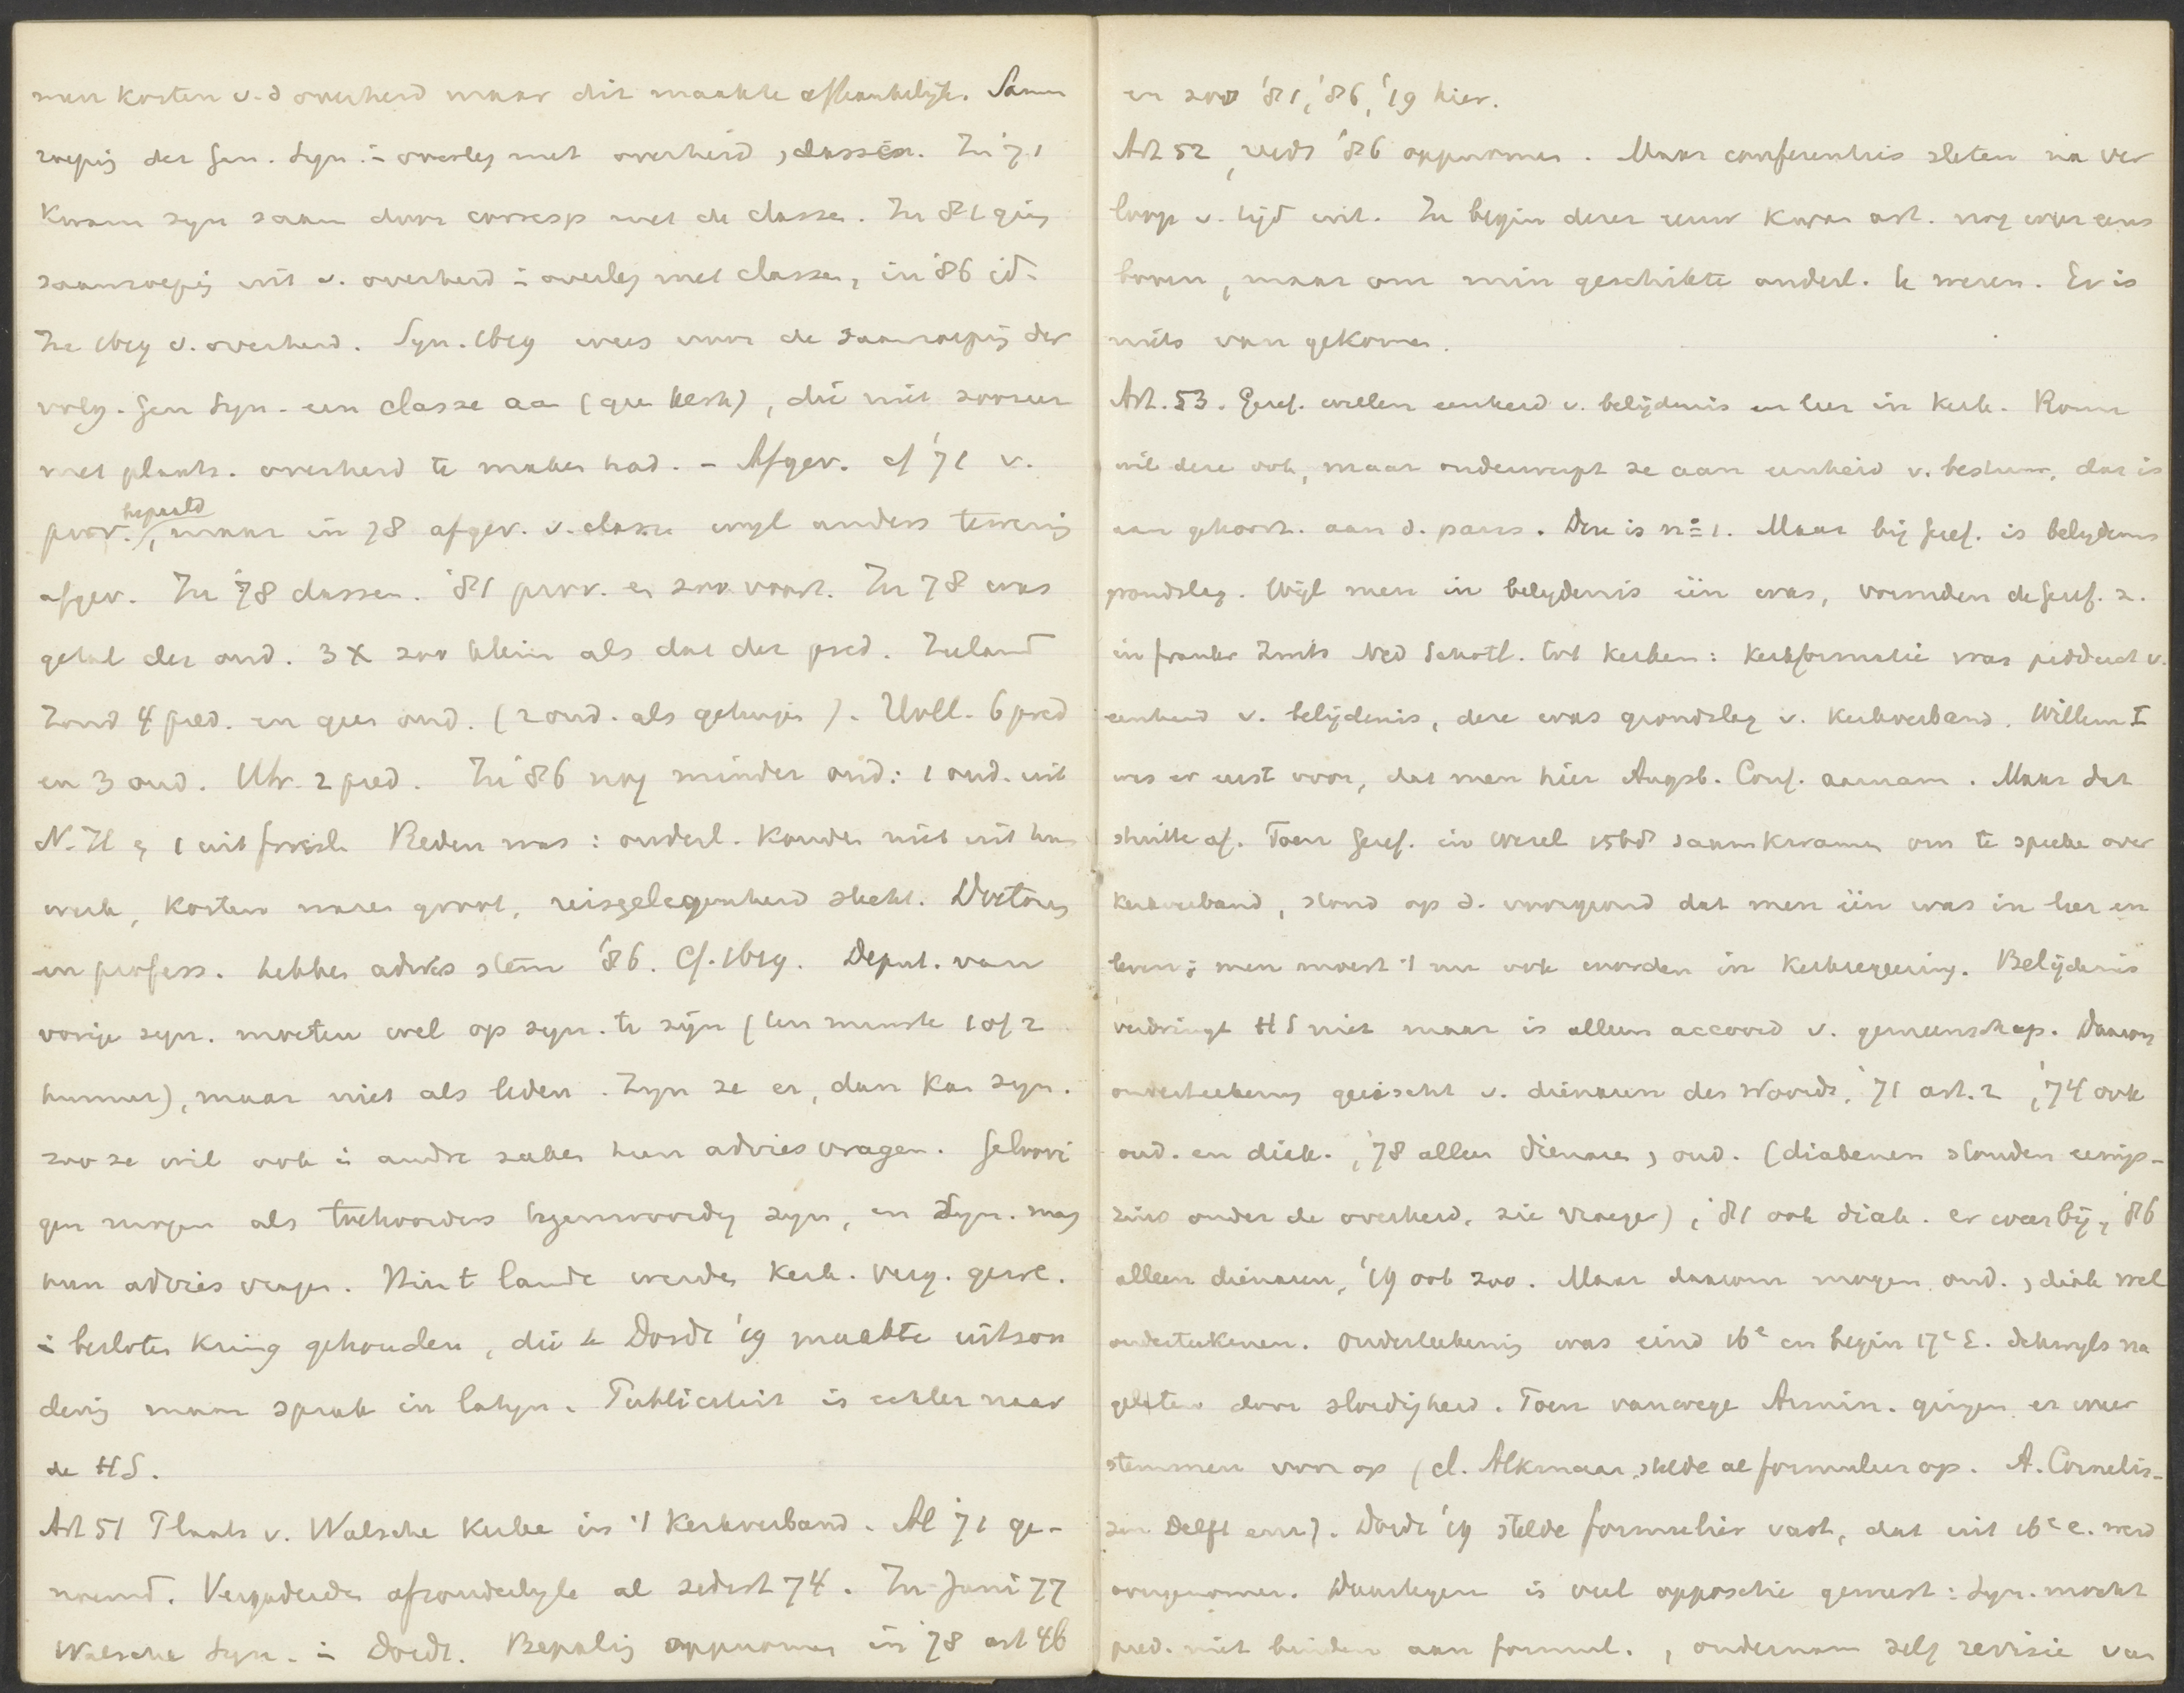 men kosten v.d overheid maar dit maakte afhankelijk. Saam
roepig der Gen. Syn. in overleg met overheid, classen. In '71
kwam syn saam door corresp met de classen. In '81 ging
saamroepig uit v. overheid in overleg met classen, in '86 id.
In 1619 v. overheid. Syn. 1619 wees voor de saamroepig der
volg. Gen Syn. een classe aan (geen kerk), die niet zoozeer
met plaats. overheid te maken had. - Afgev. cf '71 v.
prov. bepaald, maar in 78 afgev. v. classen wijl anders te weinig
afgev. In '78 classen. '81 prov. en zoo voort. In 78 was
getal der oud. 3 X zoo klein als dat der pred. Zeeland
zond 4 pred. en geen oud. (2 oud. als getuigen). Holl. 6 pred
en 3 oud. Utr. 2 pred. In '86 nog minder oud: 1 oud. uit
N.H en 1 uit Friesl. Reden was: ouderl. konden niet uit hun
werk, kosten waren groot, reisgelegenheid slecht. Doctoren
en profess. hebben advies stem '86. Cf. 1619. Deput. van
vorige syn. moeten wel op syn. te zijn (ten minste 1 of 2
hunner), maar niet als leden. Zyn ze er, dan kan syn.
zoo ze wil ook in andre zaken hun advies vragen. Geloovi
gen mogen als toehoorders tegenwoordig zyn, en Syn. mag
hun advies vragen. Hier t lande werden kerk. verg. gerel.
in besloten kring gehouden, die te Dordt '19 maakte uitzon
dering maar sprak in latijn. Publiciteit is echter naar
de HS.
Art 51 Plaats v. Walsche Kerken in 't Kerkverband. Al '71 ge-
noemd. Vergaderden afzonderlyk al sedert 74. In Juni 77
Walsche Syn. in Dordt. Bepaling opgenomen in '78 art 46
en zoo '81, '86, '19 hier.
Art 52, reeds '86 opgenomen. Maar conferenties sleten na ver
loop v. tijd uit. In begin dezer eeuw kwam art. nog weer eens
boven, maar om min geschikte ouderl. te weren. Er is
niets van gekomen.
Art. 53. Geref. willen eenheid v. belijdenis en leer in kerk. Rome
wil deze ook, maar onderwerpt ze aan eenheid v. bestuur, dat is
aan gehoorz. aan d. paus. Deze is no 1. Maar bij Geref. is belydenis
grondslag. Wijl men in belydenis één was, vormden de Geref. z.
in Frankr Zwits Ned Schotl. tot kerken: Kerkformatie was product v.
eenheid v. belijdenis, deze was grondslag v. Kerkverband. Willem I
was er eerst voor, dat men hier Augsb. Conf. aannam. Maar dat
stuitte af. Toen Geref. in Wesel 1568 saamkwamen om te spreken over
kerkverband, stond op d. voorgrond dat men één was in leer en
leven; men moest 't nu ook worden in kerkregeering. Belijdenis
verdringt HS niet maar is alleen accoord v. gemeenschap. Daarom
onderteekening geëischt v. dienaren des Woords, '71 art. 2, '74 ook
oud. en diak., '78 alleen dienaren, oud. (diakenen stonden eenigs-
zins onder de overheid, zie vroeger), '81 ook diak. er weer bij, '86
alleen dienaren, '19 ook zoo. Maar daarom mogen oud., diak wel
onderteekenen. Onderteekening was eind 16e en begin 17e E. dikwyls na
gelaten door slordigheid. Toen vanwege Armin. gingen er weer
stemmen voor op (cl. Alkmaar stelde al formulier op. A. Cornelis-
zen Delft enz). Dordt '19 stelde formulier vast, dat uit 16e e. werd
overgenomen. Daartegen is veel oppositie geweest: Syn. mocht
pred. niet binden aan formul., ondernam zelf revisie van